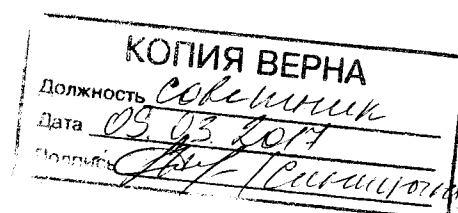 КОПИЯ ВЕРНА
Должность советник
Дата 09.03.2017
Подпись